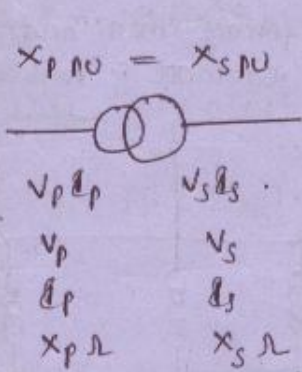 Xp pu = Xs pu
VpIp VsIs .
Vp Vs
Ip Is
Xp Ω Xs Ω